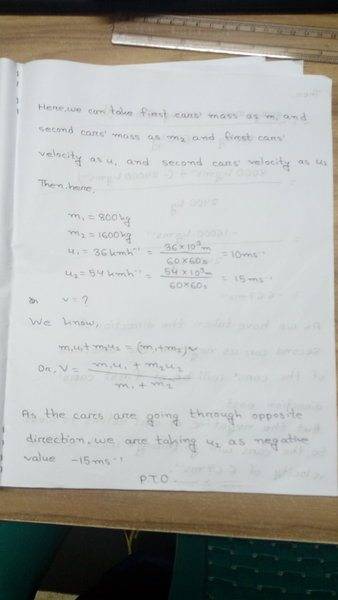 Here, we can take first cars' mass as m₁ and
second cars' mass as m₂ and first cars'
velocity as u₁ and second cars' velocity as u₂
Then, here,
m₁ = 800 kg
m₂ = 1600 kg
u₁ = 36 kmh⁻¹ = 36×10³m / 60×60s = 10ms⁻¹
u₂ = 54 kmh⁻¹ = 54×10³m / 60×60s = 15ms⁻¹
v = ?
We know,
m₁u₁ + m₂u₂ = (m₁+m₂)v
Or, V = m₁u₁ + m₂u₂ / m₁ + m₂
As the cars are going through opposite
direction, we are taking u₂ as negative
value -15ms⁻¹
P.T.O